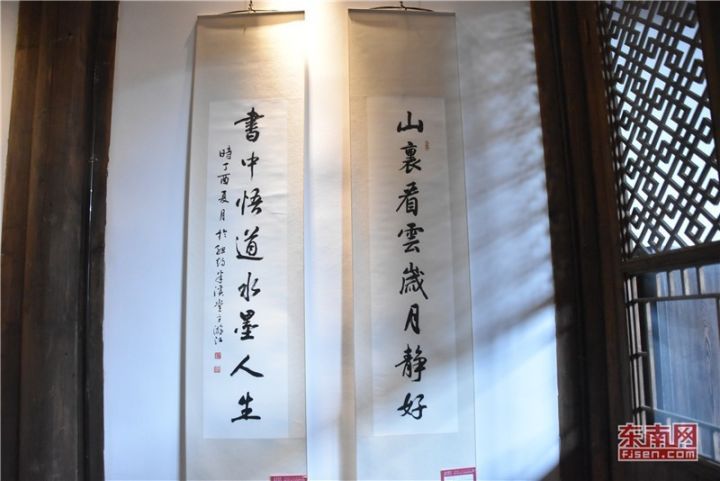 山裏看雲歲月靜好
書中悟道水墨人生
時丁酉夏月於紐約
东南网
FJSEN.COM